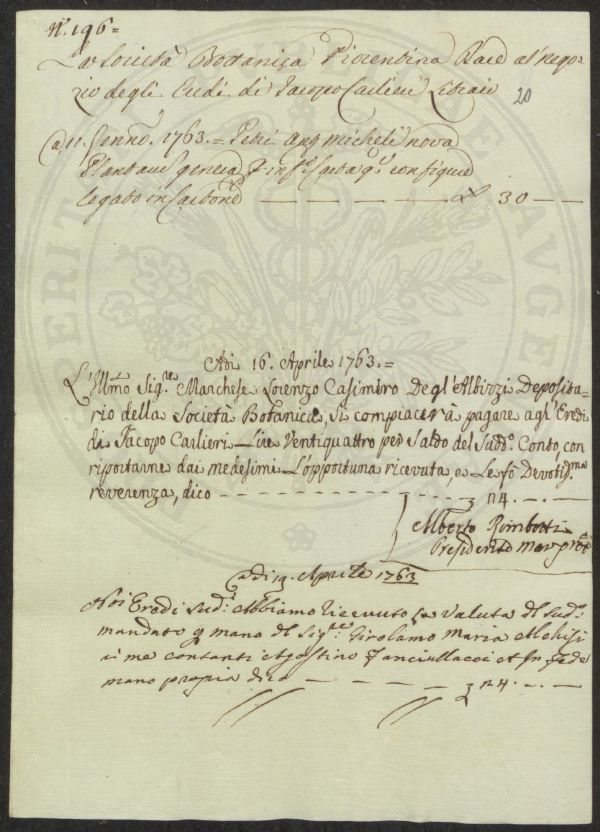 N.° 196=
La Società Botanica Fiorentina Dare al Nego-
zio degli Eredi di Jacopo Carlieri Libraio
20
Adi 11. Genn.° 1763.= Petri Ant. Micheli nova
Plantarum genera in f.° Carta con figure
legato in Cartone — — — — £ 30 — —
Adi 16. Aprile 1763.=
L'Ill̃mo Sig.re Marchese Lorenzo Casimiro Degl'Albizzi Deposita-
rio della Società Botanica, si compiacerà pagare agl'Eredi
di Jacopo Carlieri Lire Ventiquattro per Saldo del Sud.° Conto, con
riportarne dai medesimi L'opportuna ricevuta, e Le fò Devotis.ma
reverenza, dico - - - - - - - - - - £ 24. — . —
Alberto Rimbotti
Presidente mano pp.a
Adi 19. Aprile 1763
Noi Eredi Sud.i Abbiamo ricevuto la valuta del Sud.°
mandato p mano del Sig.re Girolamo Maria
in me contanti Agostino Fanciullacci et In fede
mano propria dico — — — — £ 24. — . —
PUBLICAE
PERITA
AUGE